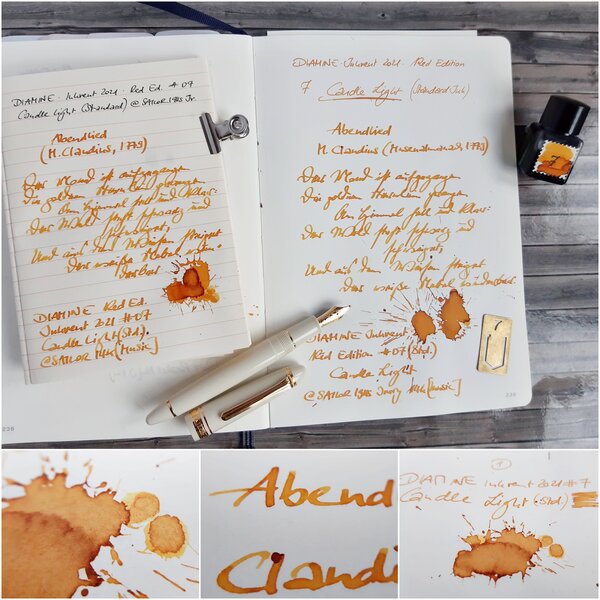 DIAMINE · Inkvent 2021 · Red Ed. #07
Candle Light (Standard) @ SAILOR 1911S Jr.
Abendlied
(M. Claudius, 1779)
Der Mond ist aufgegangen
Die goldnen Sternlein prangen
Am Himmel hell und klar:
Der Wald steht schwarz und
schweiget,
Und aus den Wiesen steiget
Der weiße Nebel
wunderbar.
DIAMINE Red Ed.
Inkvent 2021 #07
Candle Light (Std).
@SAILOR 14k [Music]
DIAMINE · Inkvent 2021 · Red Edition
7 Candle Light (Standard Ink)
Abendlied
M. Claudius (Musenalmanach, 1779)
Der Mond ist aufgegangen
Die goldnen Sternlein prangen
Am Himmel hell und klar:
Der Wald steht schwarz und
schweiget,
Und aus den Wiesen steiget
Der weiße Nebel wunderbar.
DIAMINE Inkvent
Red Edition #07 (Std.)
Candle Light
@SAILOR 1911 Ivory 14k [Music]
7
236
Abend
Claudi
1
DIAMINE Inkvent 2021 #7
Candle Light (Std.)